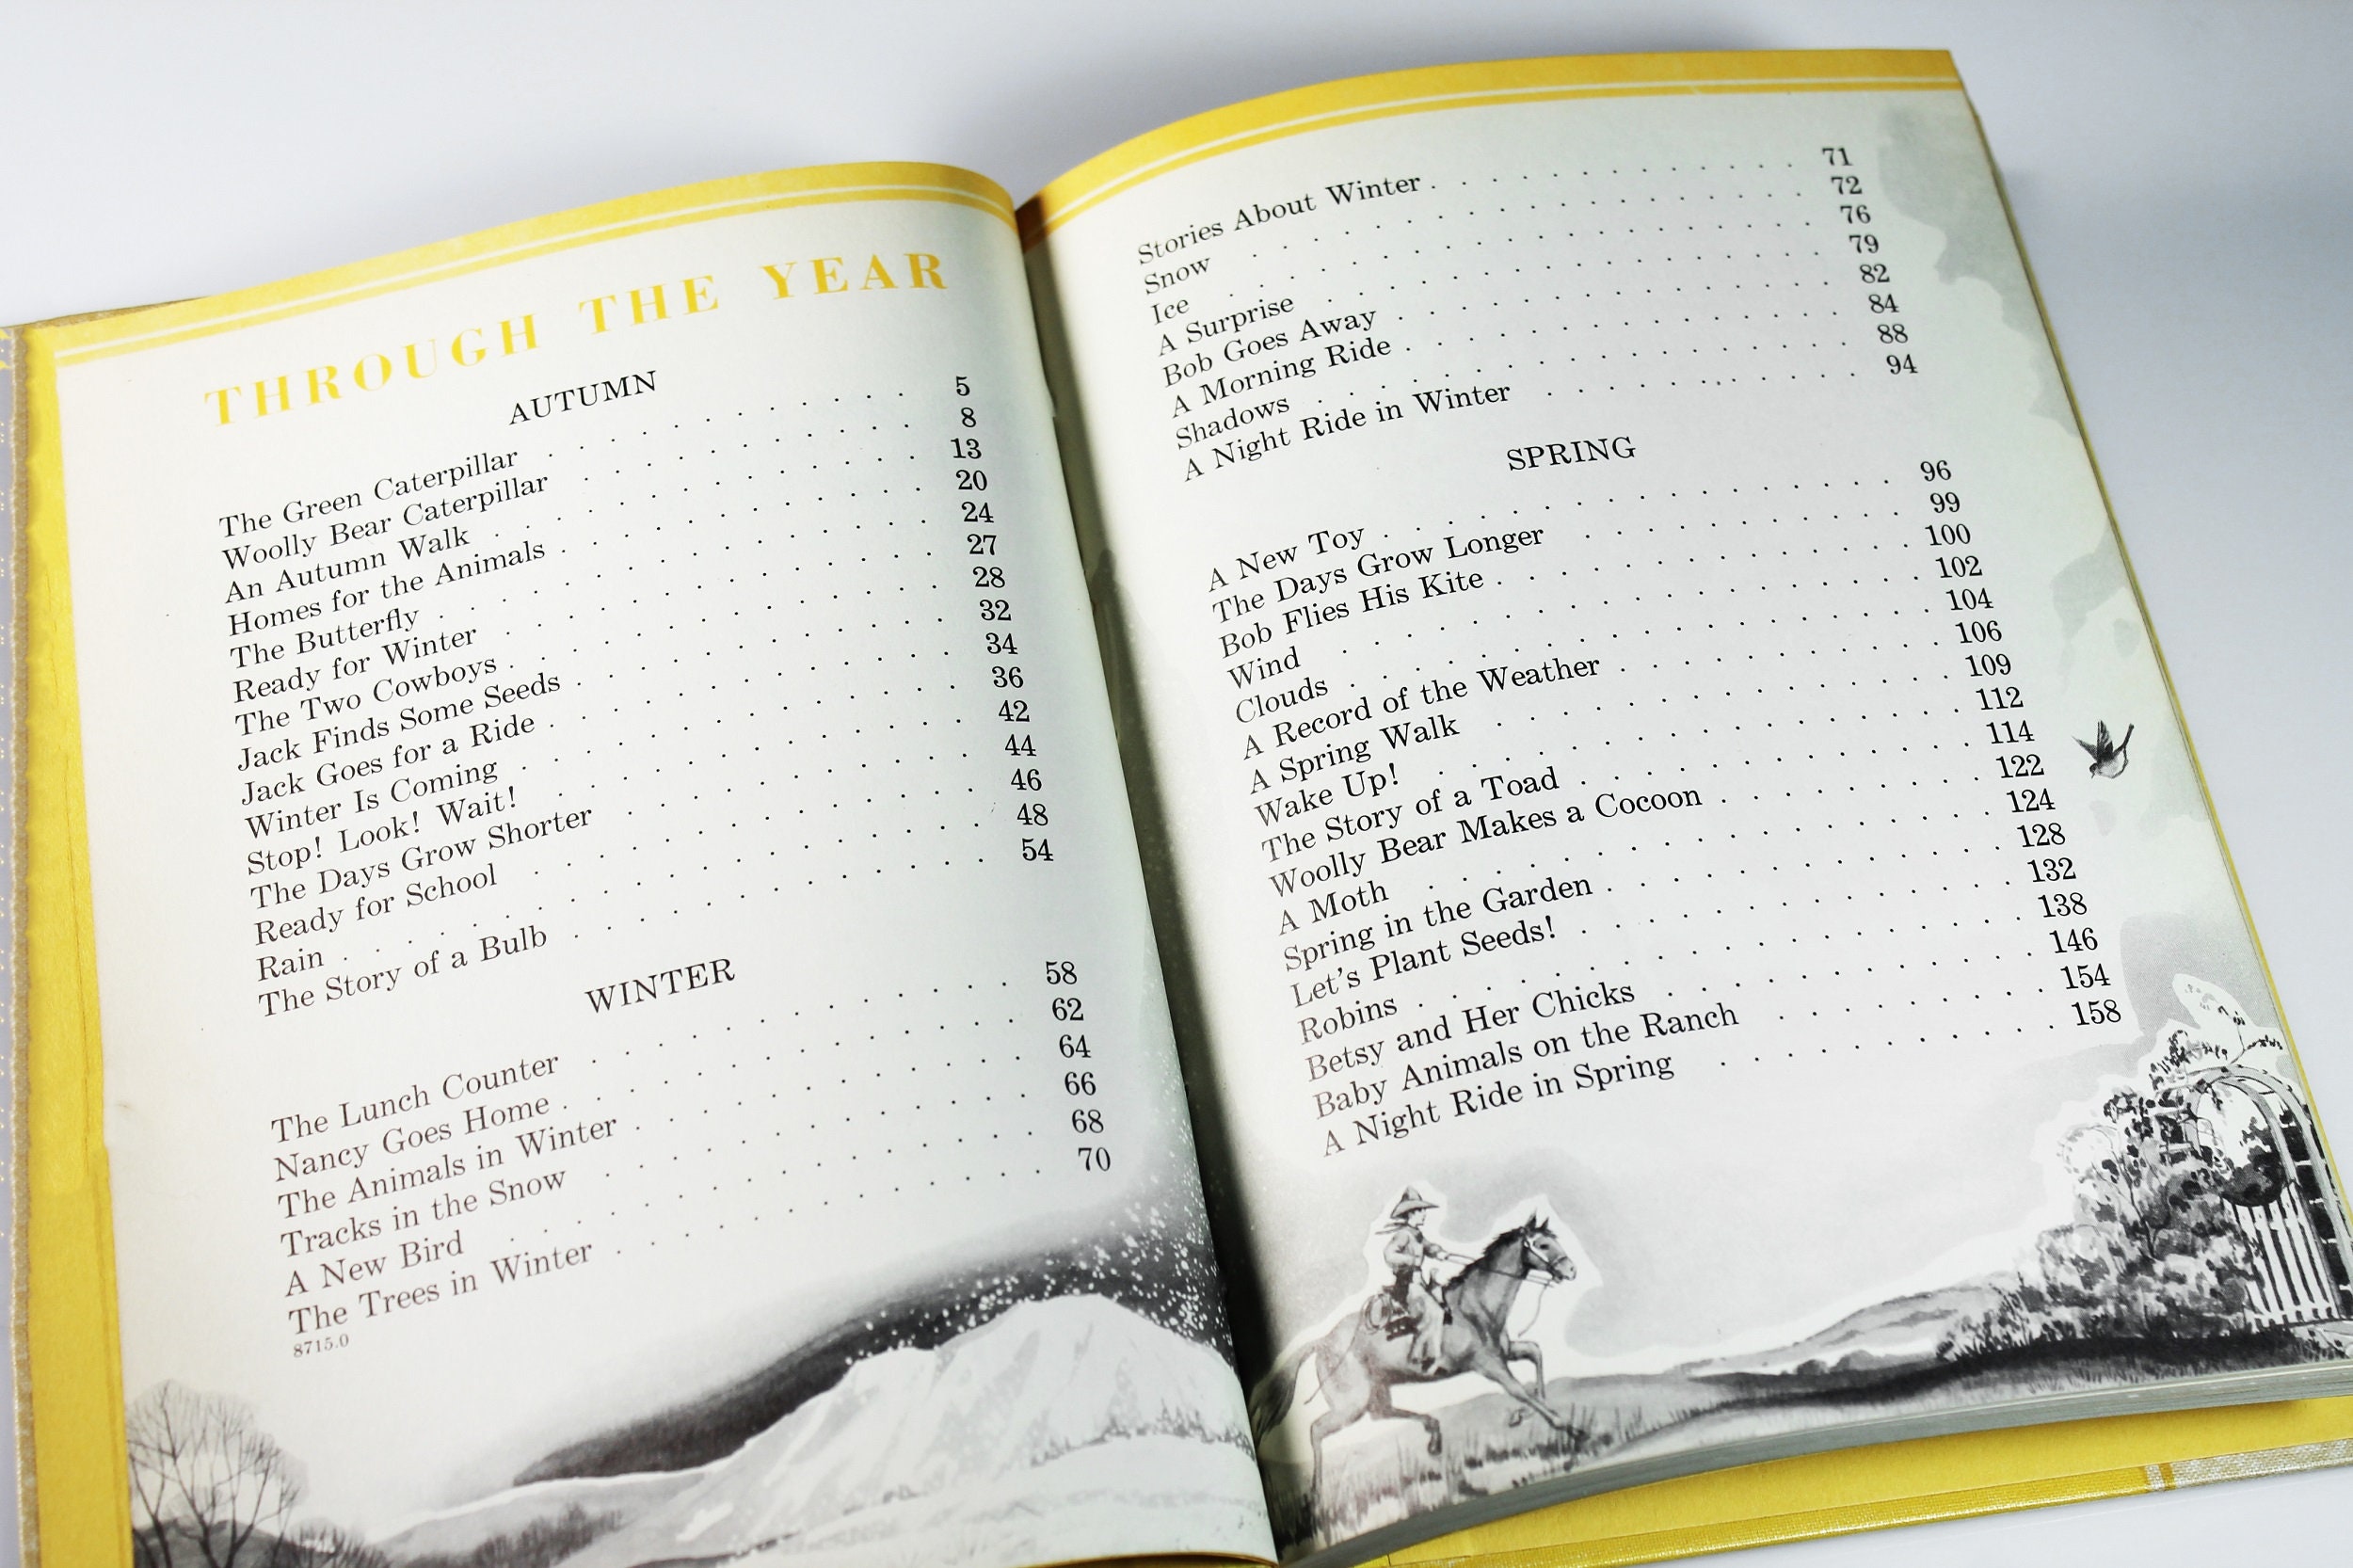 THROUGH THE YEAR
AUTUMN
The Green Caterpillar . . . . . . . . . . 5
Woolly Bear Caterpillar . . . . . . . . . . 8
An Autumn Walk . . . . . . . . . . 13
Homes for the Animals . . . . . . . . . . 20
The Butterfly . . . . . . . . . . 24
Ready for Winter . . . . . . . . . . 27
The Two Cowboys . . . . . . . . . . 28
Jack Finds Some Seeds . . . . . . . . . . 32
Jack Goes for a Ride . . . . . . . . . . 34
Winter Is Coming . . . . . . . . . . 36
Stop! Look! Wait! . . . . . . . . . . 42
The Days Grow Shorter . . . . . . . . . . 44
Ready for School . . . . . . . . . . 46
Rain . . . . . . . . . . 48
The Story of a Bulb . . . . . . . . . . 54
WINTER
The Lunch Counter . . . . . . . . . . 58
Nancy Goes Home . . . . . . . . . . 62
The Animals in Winter . . . . . . . . . . 64
Tracks in the Snow . . . . . . . . . . 66
A New Bird . . . . . . . . . . 68
The Trees in Winter . . . . . . . . . . 70
8715.0
Stories About Winter . . . . . . . . . . 71
Snow . . . . . . . . . . 72
Ice . . . . . . . . . . 76
A Surprise . . . . . . . . . . 79
Bob Goes Away . . . . . . . . . . 82
A Morning Ride . . . . . . . . . . 84
Shadows . . . . . . . . . . 88
A Night Ride in Winter . . . . . . . . . . 94
SPRING
A New Toy . . . . . . . . . . 96
The Days Grow Longer . . . . . . . . . . 99
Bob Flies His Kite . . . . . . . . . . 100
Wind . . . . . . . . . . 102
Clouds . . . . . . . . . . 104
A Record of the Weather . . . . . . . . . . 106
A Spring Walk . . . . . . . . . . 109
Wake Up! . . . . . . . . . . 112
The Story of a Toad . . . . . . . . . . 114
Woolly Bear Makes a Cocoon . . . . . . . . . 122
A Moth . . . . . . . . . . 124
Spring in the Garden . . . . . . . . . . 128
Let's Plant Seeds! . . . . . . . . . . 132
Robins . . . . . . . . . . 138
Betsy and Her Chicks . . . . . . . . . . 146
Baby Animals on the Ranch . . . . . . . . . 154
A Night Ride in Spring . . . . . . . . . . 158